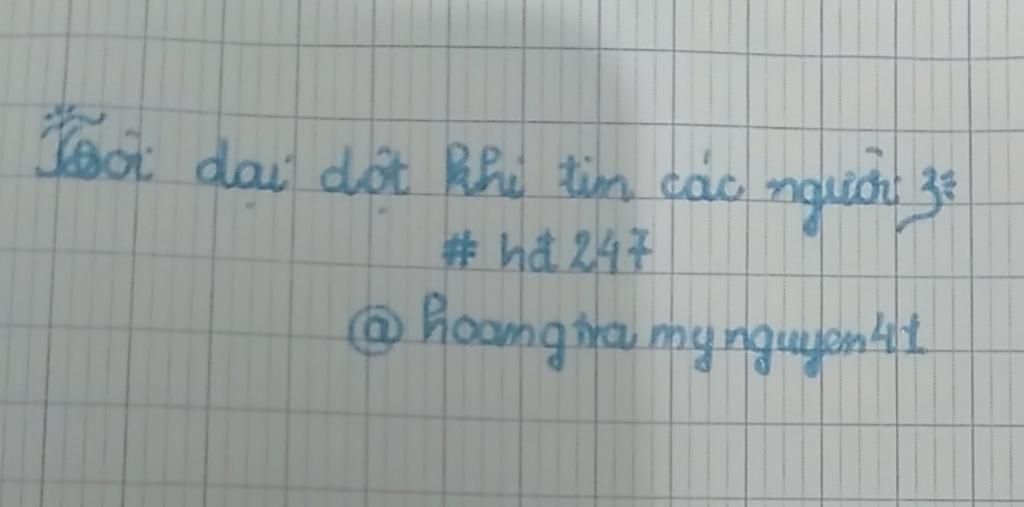 dại dột khi tin các người
# hd 247
@ hoangtramynguyen41